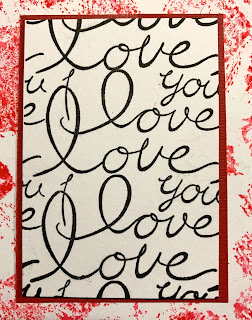 love
you
u I love
e love
you
u I love
e love
you
u I